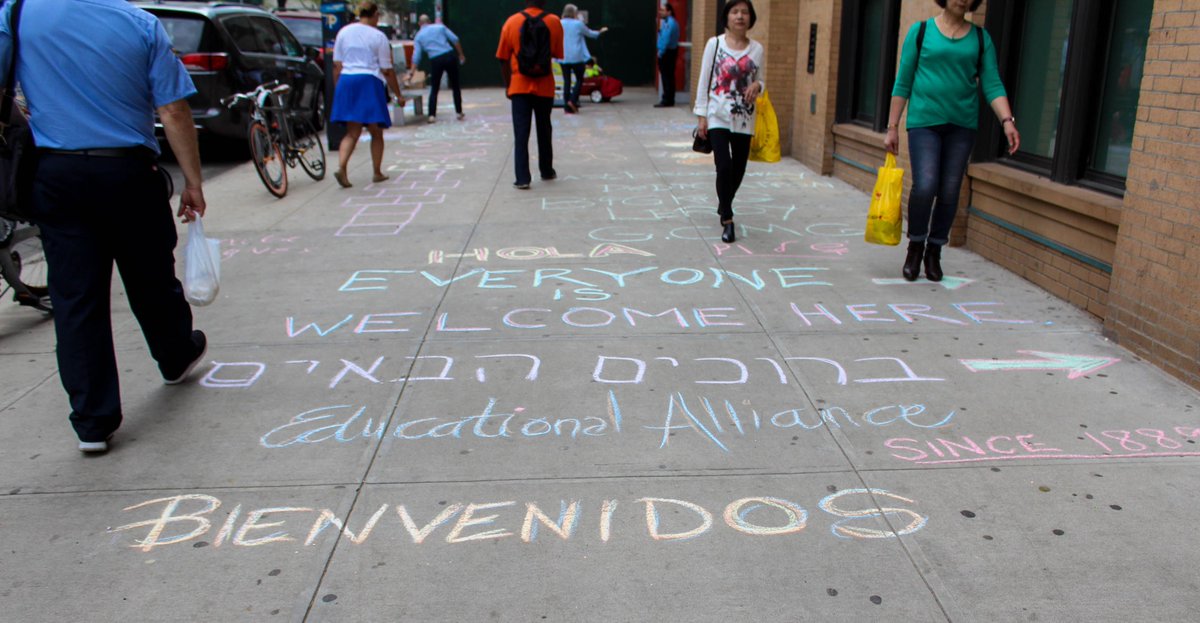 HOLA
EVERYONE
IS
WELCOME HERE.
ברוכים הבאים
Educational Alliance
SINCE 1889
BIENVENIDOS